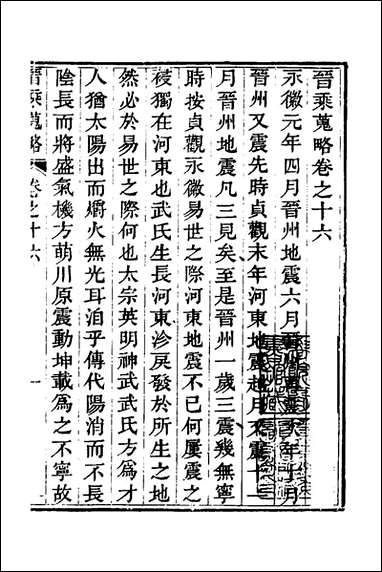 晉乘蒐略卷之十六
永徽元年四月晉州地震六月晉州又震次年十月
晉州又震先時貞觀末年河東地震越月又震十一
月晉州地震凡三見矣至是晉州一歲三震幾無寧
時按貞觀永徽易世之際河東地震不已何屢震之
祲獨在河東也武氏生長河東沴戾發於所生之地
然必於易世之際何也太宗英明神武武氏方為才
人猶太陽出而爝火無光耳洎乎傳代陽消而不長
陰長而將盛氣機方萌川原震動坤載為之不寧故
晉乘蒐略
卷之十六
一